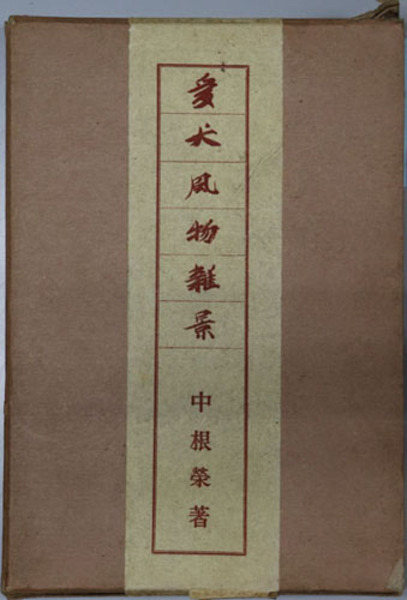 愛犬風物雜景
中根榮著